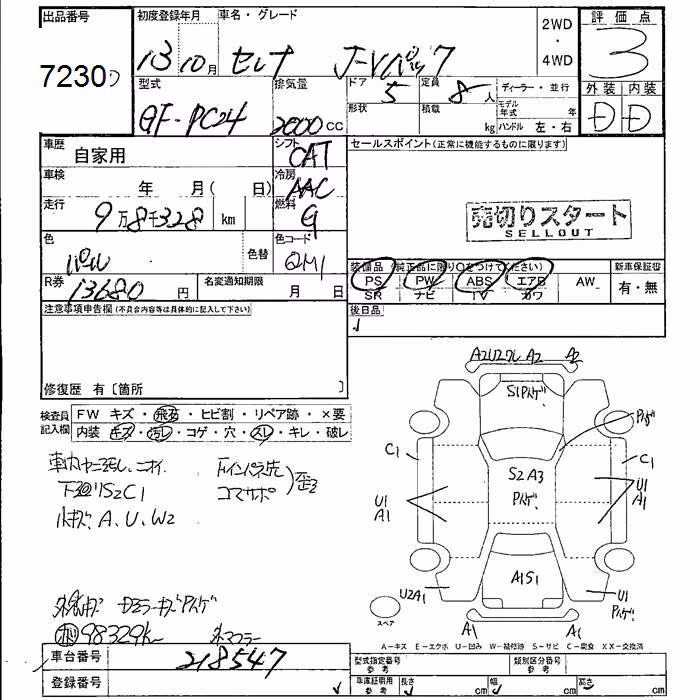 出品番号 初度登録年月 車名・グレード 2WD・4WD 評価点
7230
13 10月 セレナ J-V 3
型式 排気量 ドア 5 定員 8人 ディーラー・並行 外装 内装
GF-PC24 2000cc 形状 積載 kg モデル年式 年 ハンドル 左・右 D D
車歴 自家用 シフト CAT セールスポイント(正常に機能するものに限ります)
車検 年 月( 日) 冷房 AAC
走行 9万8千328km 燃料 G 売切りスタート
SELLOUT
色 パール 色替 色コード QM1
装備品 (純正品に限り○をつけてください) 新車保証書
PS PW ABS エアB AW 有・無
SR ナビ TV カワ
R券 13680円 名変通知期限 月 日
注意事項申告欄(不具合内容等は具体的に記入して下さい) 後日品
修復歴 有〔箇所 〕
検査員記入欄 FW キズ・飛石・ヒビ割・リペア跡・×要
内装 キズ・汚レ・コゲ・穴・スレ・キレ・破レ
A2U2 A2 A2
S1
C1 S2 A3 C1
U1 A1 U1 A1
A1S1
U2A1 U1
A1 A1
下廻りS2C1
小キズ、A、U、W2
98329K
スペア
A-キズ E-エクボ U-凹み W-補修跡 S-サビ C-腐食 XX-交換済
車台番号 218547 型式指定番号 参考 類別区分番号 参考
登録番号 車庫証明用 参考 長さ cm 幅 cm 高さ cm